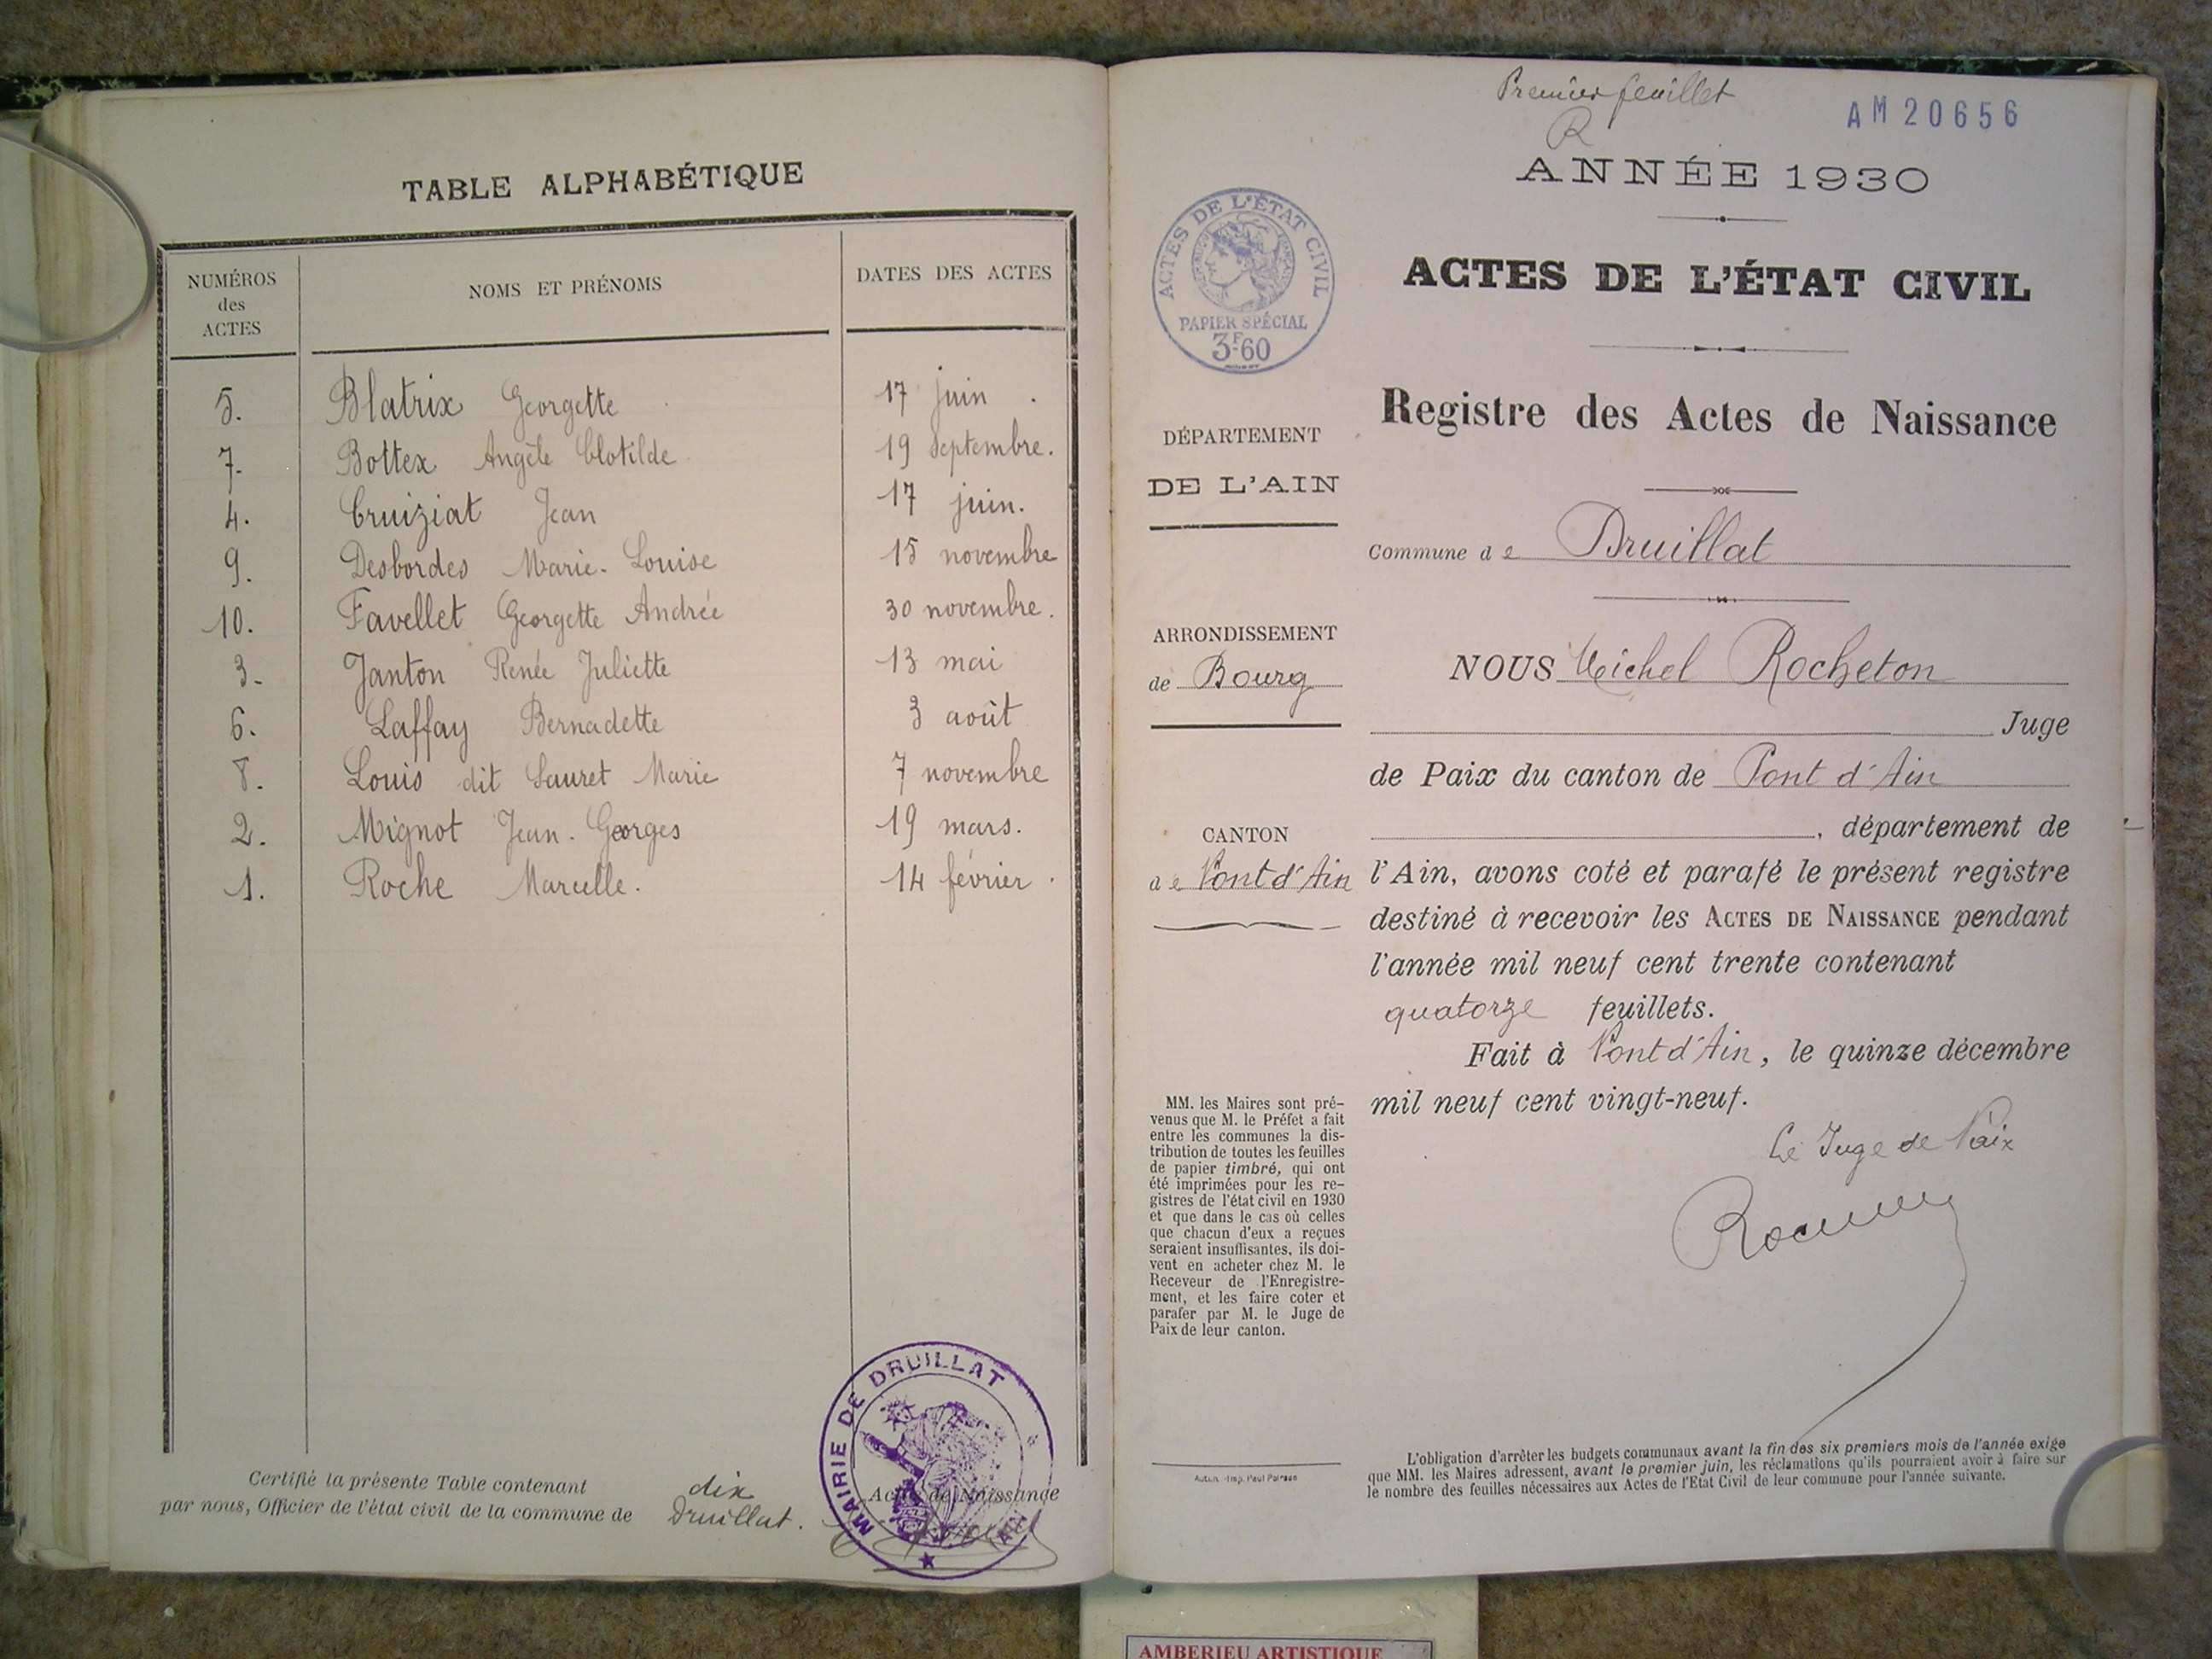 TABLE ALPHABÉTIQUE
NUMÉROS
des
ACTES
NOMS ET PRÉNOMS
DATES DES ACTES
5. Blatrix Georgette 17 juin.
7. Bottex Angèle Clotilde 19 septembre.
4. Cruiziat Jean 17 juin.
9. Desbordes Marie-Louise 15 novembre
10. Favellet Georgette Andrée 30 novembre.
3. Janton Renée Juliette 13 mai
6. Laffay Bernadette 3 août
8. Louis dit Sauret Marie 7 novembre
2. Mignot Jean-Georges 19 mars.
1. Roche Marcelle. 14 février.
Certifié la présente Table contenant dix Actes de Naissance
par nous, Officier de l'état civil de la commune de Druillat.
MAIRIE DE DRUILLAT
AIN
Premier feuillet
R
AM 20656
ANNÉE 1930
ACTES DE L'ÉTAT CIVIL
PAPIER SPÉCIAL
3F.60
ACTES DE L'ÉTAT CIVIL
Registre des Actes de Naissance
DÉPARTEMENT
DE L'AIN
Commune de Druillat
ARRONDISSEMENT
de Bourg
CANTON
de Pont d'Ain
NOUS Michel Rocheton
Juge
de Paix du canton de Pont d'Ain
, département de
l'Ain, avons coté et parafé le présent registre
destiné à recevoir les ACTES DE NAISSANCE pendant
l'année mil neuf cent trente contenant
quatorze feuillets.
Fait à Pont d'Ain, le quinze décembre
mil neuf cent vingt-neuf.
Le Juge de Paix
MM. les Maires sont pré-
venus que M. le Préfet a fait
entre les communes la dis-
tribution de toutes les feuilles
de papier timbré, qui ont
été imprimées pour les re-
gistres de l'état civil en 1930
et que dans le cas où celles
que chacun d'eux a reçues
seraient insuffisantes, ils doi-
vent en acheter chez M. le
Receveur de l'Enregistre-
ment, et les faire coter et
parafer par M. le Juge de
Paix de leur canton.
Autun. - Imp. Paul Poirson
L'obligation d'arrêter les budgets communaux avant la fin des six premiers mois de l'année exige
que MM. les Maires adressent, avant le premier juin, les réclamations qu'ils pourraient avoir à faire sur
le nombre des feuilles nécessaires aux Actes de l'Etat Civil de leur commune pour l'année suivante.
AMBERIEU ARTISTIQUE